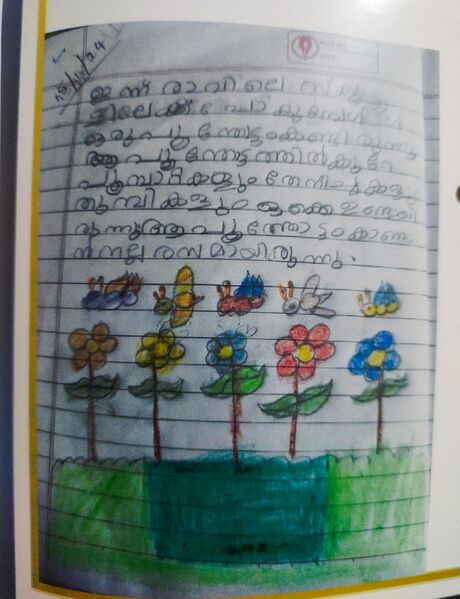 15/11/24
ഇന്ന് രാവിലെ സ്കൂ
ളിലേക്ക് പോകുമ്പോൾ
ഒരു പൂന്തോട്ടം കണ്ടിരുന്നു
ആ പൂന്തോട്ടത്തിൽ കുറേ
പൂമ്പാറ്റകളും തേനീച്ചകളും
തുമ്പികളും ഒക്കെ ഉണ്ടായി
രുന്നു ആ പൂന്തോട്ടം കാണാ
ൻ നല്ല രസമായിരുന്നു.